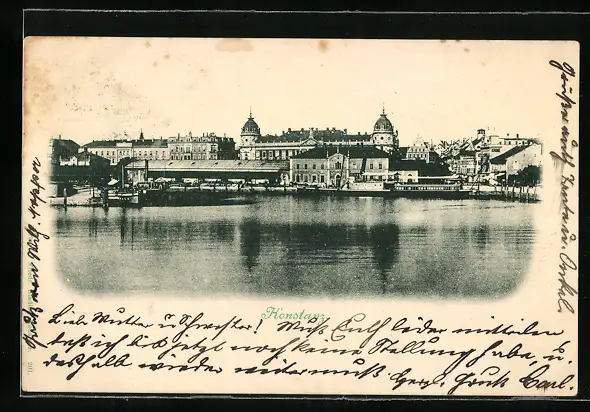 Konstanz
Liebe Mutter u. Schwester! Muß Euch leider mitteilen
daß ich bis jetzt noch keine Stellung habe, u.
deshalb wieder weiter muß. Herz. Gruß Carl.
Grüße auch Tante u. Onkel.
Gruß von Wilh.